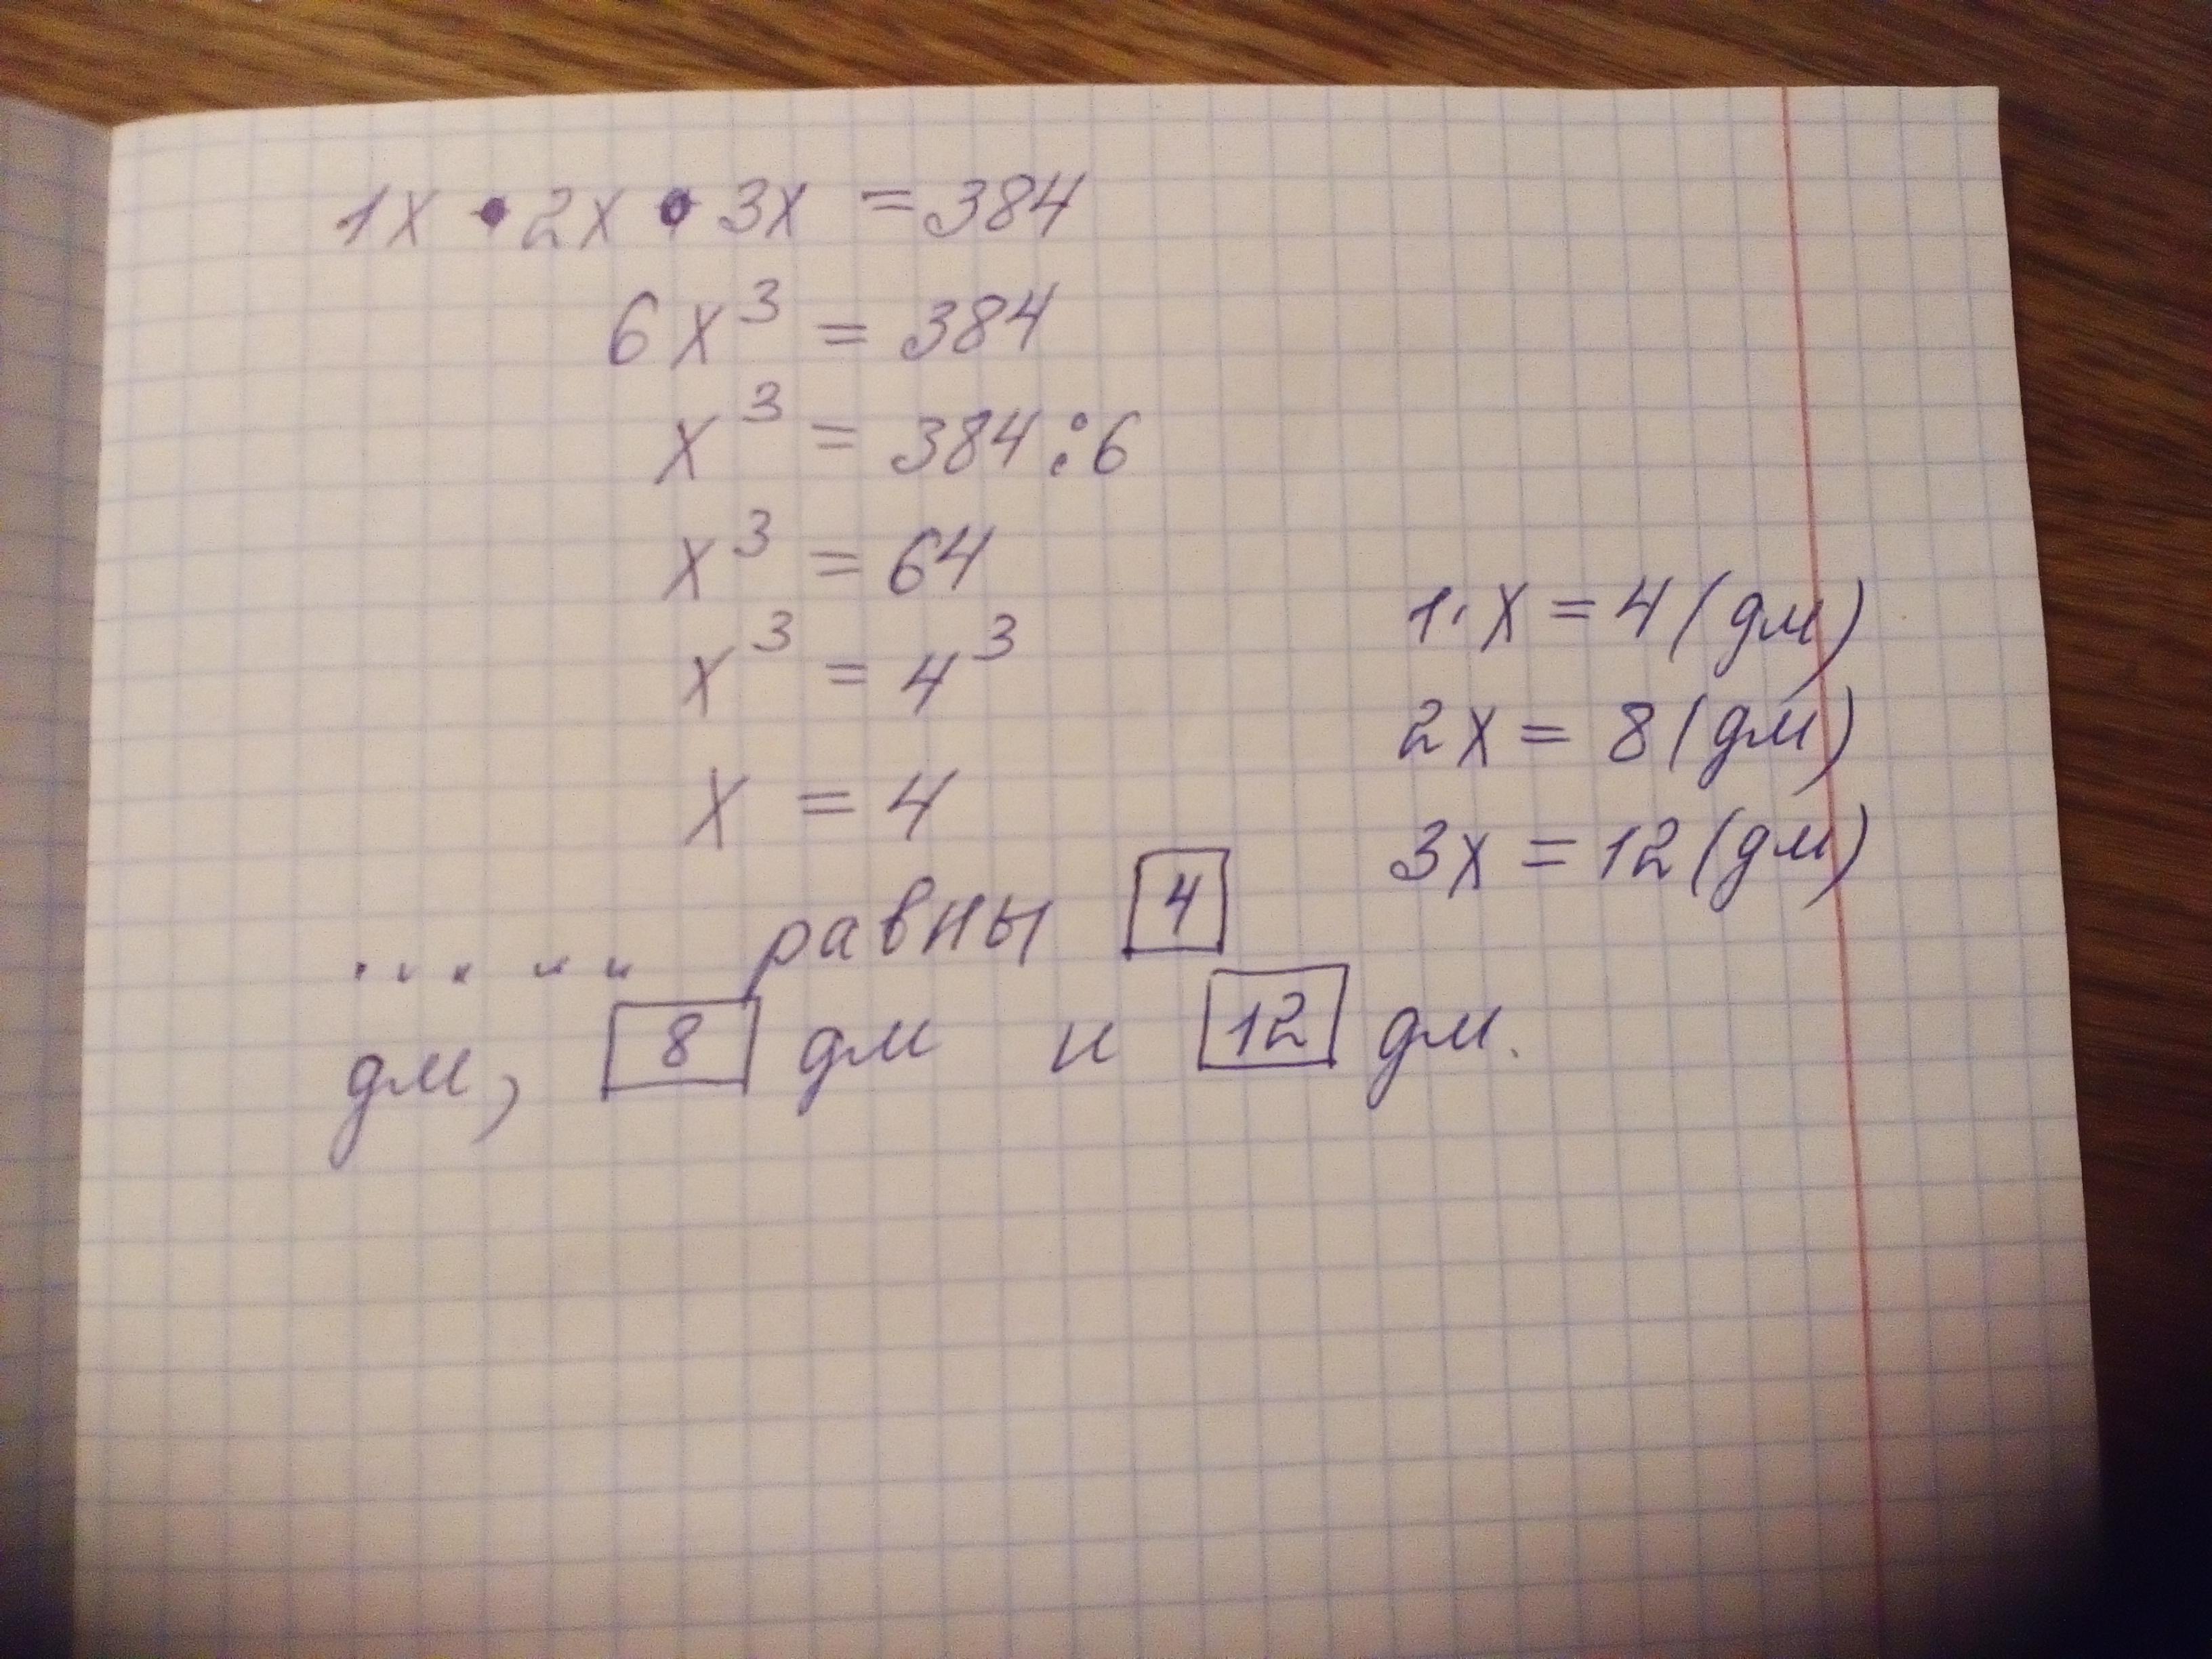 1x • 2x • 3x = 384
6x³ = 384
x³ = 384 : 6
x³ = 64
x³ = 4³
x = 4
1·x = 4 (дм)
2x = 8 (дм)
3x = 12 (дм)
...... равны 4
дм, 8 дм и 12 дм.